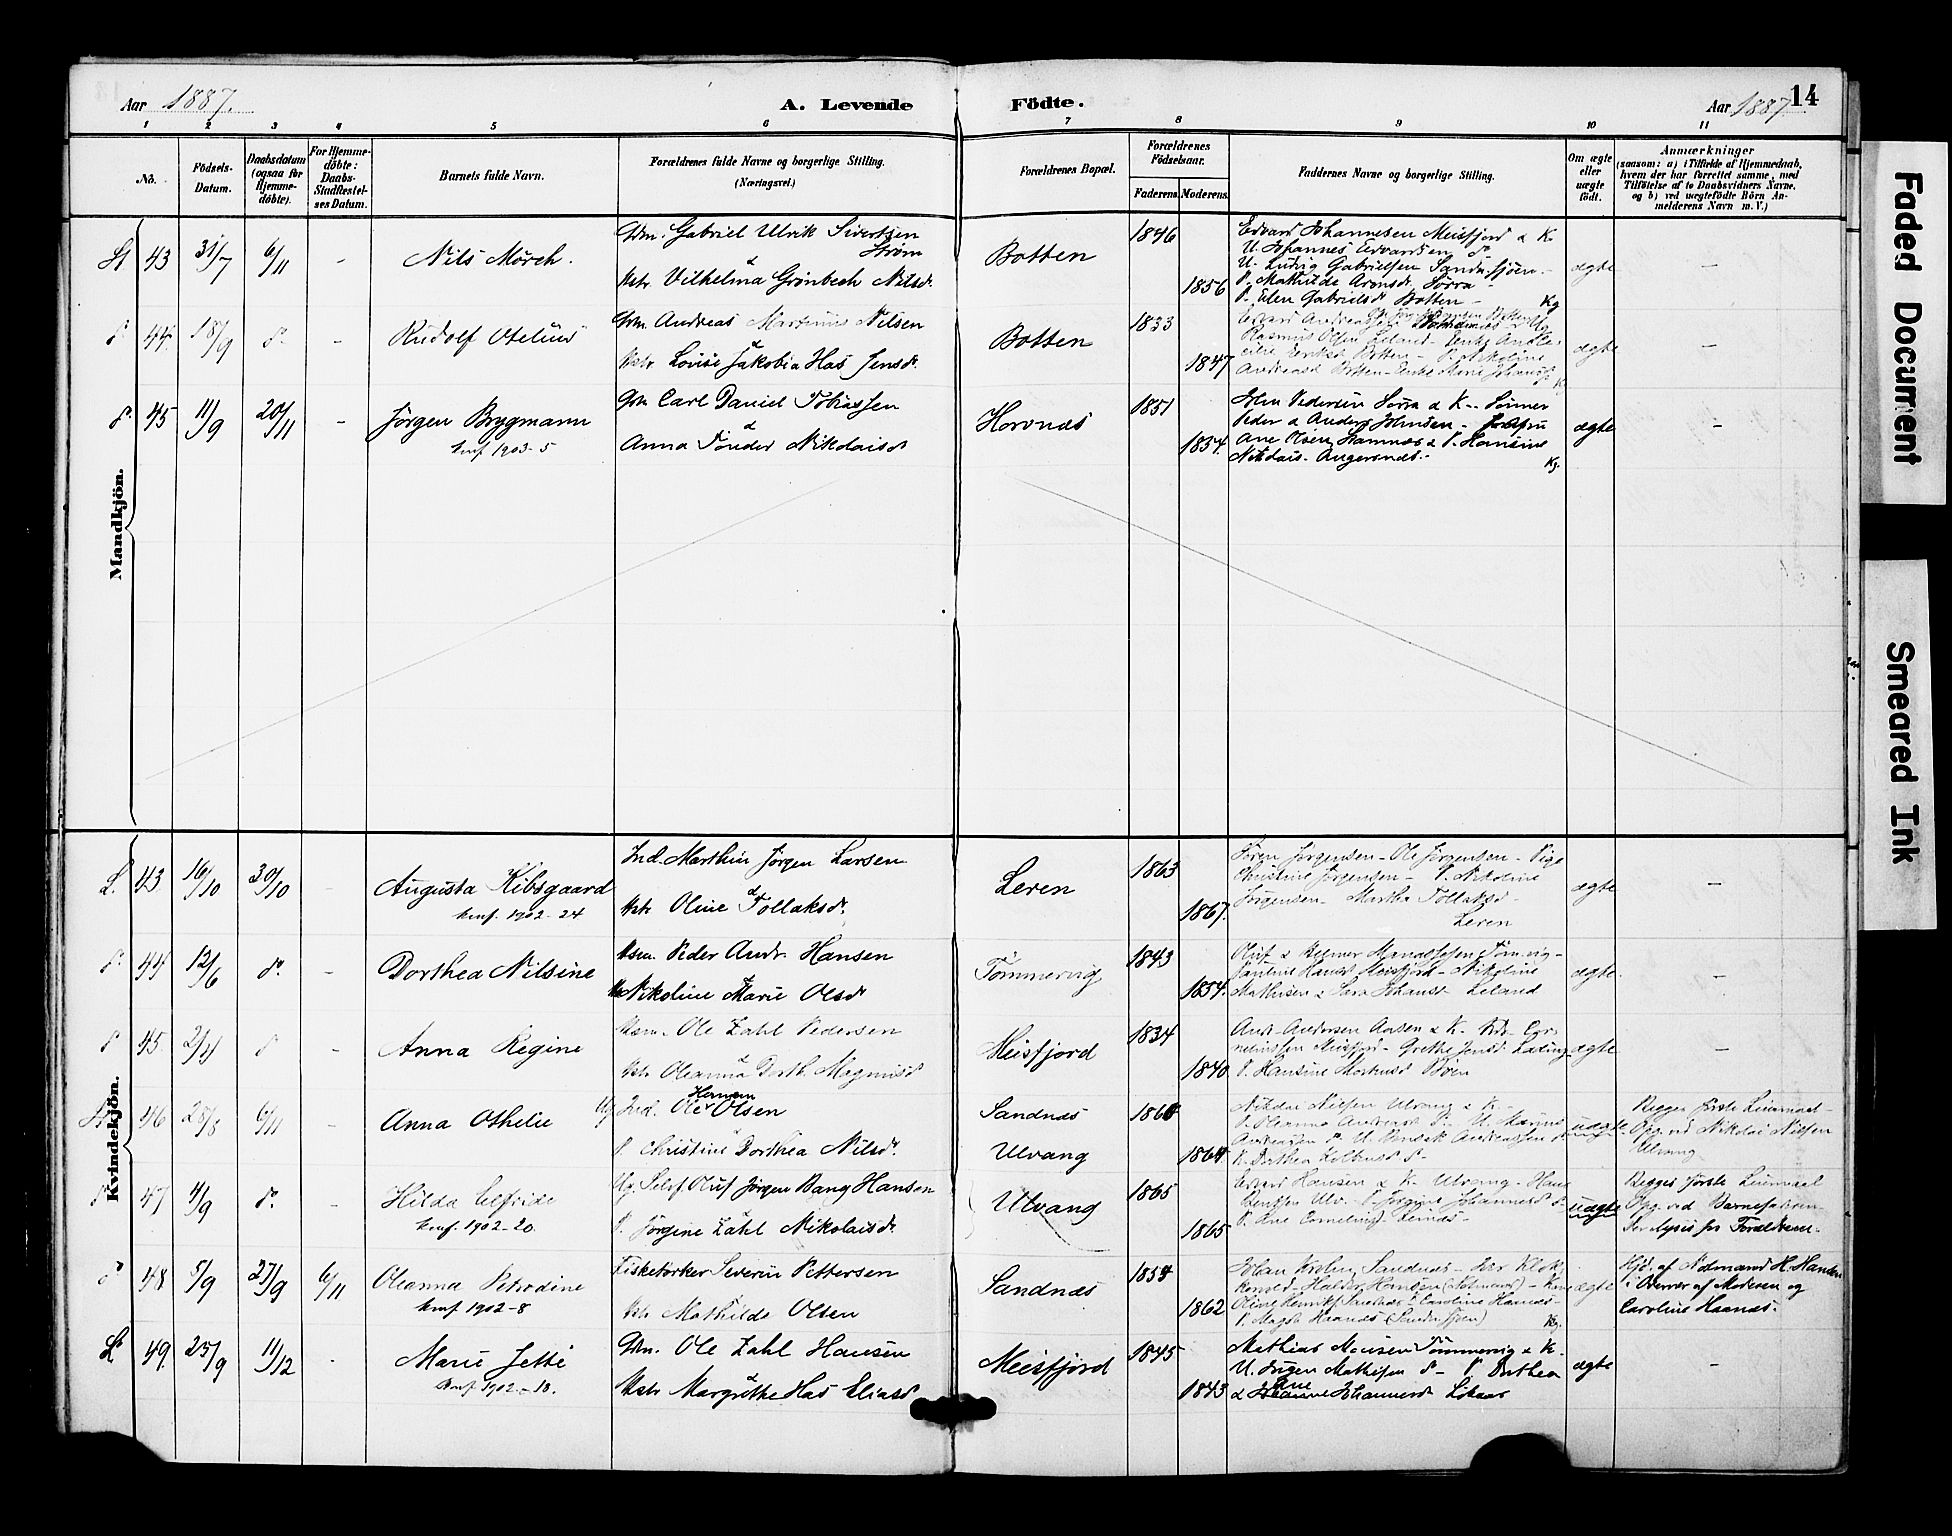 Aar 1887.
A. Levende Födte.
Aar 1887
14
1 2 3 4 5 6 7 8 9 10 11
No.
Födsels-Datum.
Daabsdatum (ogsaa for Hjemme-döbte).
For Hjemme-döbte: Daabs-Stadfæstel-ses Datum.
Barnets fulde Navn.
Forældrenes fulde Navne og borgerlige Stilling.
(Næringsvei.)
Forældrenes Bopæl.
Forældrenes Födselsaar.
Faderens. Moderens.
Faddernes Navne og borgerlige Stilling.
Om ægte eller uægte födt.
Anmærkninger
(saasom: a) i Tilfælde af Hjemmedaab,
hvem der har forrettet samme, med
Tilföielse af to Daabsvidners Navne.
og b) ved uægtefödte Börn An-
melderens Navn m. V.)
Mandkjön.
43 31/7 6/11 - Nils Mörch.
Gm. Gabriel Ulrik Sivertsen Ström
& Hstr. Vilhelmina Grönbech Nilsd.
Botten 1846 1856
Edvard Johannesen Meisfjord & K.
U. Johannes Edvardsen d°
U. Ludvig Gabrielsen Sandnessjöen
P. Mathilde Aronsd. Sörra
P. Elen Gabrielsd Botten -
ægte -
44. 18/9 d° - Rudolf Otelius
Gm. Andreas Martinus Nilsen
& Hstr. Lovise Jakobia Has Jensd.
Botten 1833 1847
Rasmus Olsen Leland
Botten - P. Nikoline
Andreasd Botten - Enke Marie
ægte -
45 11/9 20/11 - Jörgen Brygmann
konf 1903-5
Gm Carl Daniel Tobiassen
& Anna Tönder Nikolaisd
Horvnæs 1851 1854.
John Pedersen Sörra & K - Sönner
Peder & Anders Johnsen -
Ane Olsen Hamnæs & P. Hansine
Nikolais. Angersnæs.-
Kg.
ægte -
Kvindekjön.
L. 43 16/10 30/10 - Augusta Kibsgaard
konf. 1902-24
Ind. Marthin Jörgen Larsen
& Hstr Oline Tollaksd.
Leren 1863 1867.
Sören Jörgensen - Ole Jörgensen - Pige
Christine Jörgensen - P. Nikoline
Jörgensen - Martha Tollaksd -
Leren
ægte -
44 12/6 d° - Dorthea Nilsine
Hsm. Peder Andr. Hansen
& Nikoline Marie Olsd
Tömmervig 1843 1854.
Pauline Hansd Meisfjord - Nikoline
Mathisen & Sara Johansd Leland
ægte. -
45. 2/4 d° - Anna Regine
Hsm. Ole Zahl Pedersen
& Hstr Oleanna Dorth. Magnusd
Meisfjord 1834 1840
Andr. Andersen Aasen & K.
Meisfjord - Grethe Jensd.
P. Hansine Mortensd
ægte -
46 25/8 6/11 - Anna Othelie
Ug. Ind. Ole Herman Olsen
P. Christine Dorthea Nilsd.
Sandnæs
Ulvang
1860 1864
Nikolai Nilsen Ulvang & K -
P. Oleanna Andreasd d° - U. Marius
Andreassen d° U. Andreassen d°
uægte
Begges förste Leiermaal -
Opg. ved Nikolai Nilsen
Ulvang
47 4/9 d° - Hilda Elfride
konf. 1902-20.
Ug. Selvf. Oluf Jörgen Bang Hansen
& P. Jörgine Zahl Nikolaisd.
Ulvang 1865 1865
Edvard Hansen & K. Ulvang - Hans
Bentsen Ulv. - P. Jörgine Johannesd d°
P. Ane Corneliusd
uægte
Begges förste Leiermaal
Opg. ved Barnefaderen
for Forældrene.
48 5/9 27/9 6/11 Oleanna Petrodine
konf 1902-8
Fisketørker Severin Pettersen
Hstr Mathilde Olsen
Sandnæs 1858 1862
Sandnæs
P. Magda Haanæs (Sandnessjöen) Kg.
ægte
Hjd. af Nödmand H. Hansen
i Overvær af Moderen og
Caroline Haanæs.
49. 25/9 11/12 - Marie Jette
Konf 1902-18.
Gm. Ole Zahl Hansen
& Hstr Margrethe Has Eliasd
Meisfjord 1845 1843
Mathias Monsen Tömmervig & K.
U. Jörgen Mathisen d° - P. Dorthea
& Ane Johannesd
ægte -
Faded Document
Smeared Ink